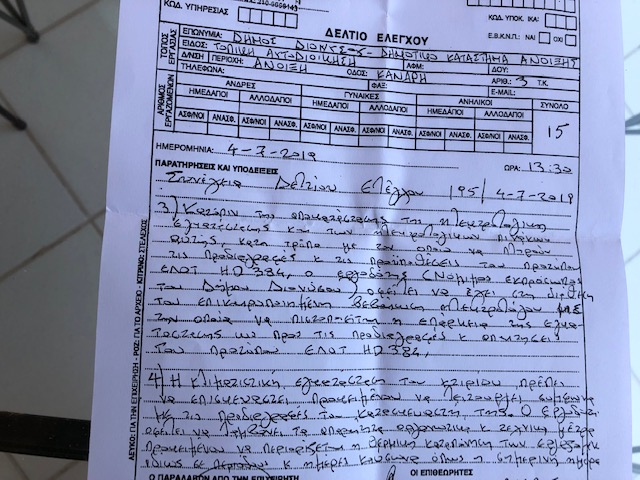 210-9989143
ΚΩΔ. ΥΠΗΡΕΣΙΑΣ
ΚΩΔ. ΥΠΟΚ. ΙΚΑ:
ΔΕΛΤΙΟ ΕΛΕΓΧΟΥ
Ε.Β.Κ.Ν.Π.: ΝΑΙ ΟΧΙ
ΤΟΠΟΣ ΕΡΓΑΣΙΑΣ
ΕΠΩΝΥΜΙΑ: ΔΗΜΟΣ ΔΙΟΝΥΣΟΥ - ΔΗΜΟΤΙΚΟ ΚΑΤΑΣΤΗΜΑ ΑΝΟΙΞΗΣ
ΕΙΔΟΣ: ΤΟΠΙΚΗ ΑΥΤΟΔΙΟΙΚΗΣΗ ΑΦΜ: ΔΟΥ:
Δ/ΝΣΗ ΠΕΡΙΟΧΗ: ΑΝΟΙΞΗ ΟΔΟΣ: ΚΑΝΑΡΗ ΑΡΙΘ.: 3 Τ.Κ.
ΤΗΛΕΦΩΝΑ: ΦΑΞ: E-MAIL:
ΑΡΙΘΜΟΣ ΕΡΓΑΖΟΜΕΝΩΝ
ΑΝΔΡΕΣ ΓΥΝΑΙΚΕΣ ΑΝΗΛΙΚΟΙ ΣΥΝΟΛΟ
ΗΜΕΔΑΠΟΙ ΑΛΛΟΔΑΠΟΙ ΗΜΕΔΑΠΟΙ ΑΛΛΟΔΑΠΟΙ ΗΜΕΔΑΠΟΙ ΑΛΛΟΔΑΠΟΙ
ΑΣΦ/ΝΟΙ ΑΝΑΣΦ. ΑΣΦ/ΝΟΙ ΑΝΑΣΦ. ΑΣΦ/ΝΟΙ ΑΝΑΣΦ. ΑΣΦ/ΝΟΙ ΑΝΑΣΦ. ΑΣΦ/ΝΟΙ ΑΝΑΣΦ. ΑΣΦ/ΝΟΙ ΑΝΑΣΦ. 15
ΗΜΕΡΟΜΗΝΙΑ: 4-7-2019 ΩΡΑ: 13:30
ΠΑΡΑΤΗΡΗΣΕΙΣ ΚΑΙ ΥΠΟΔΕΙΞΕΙΣ
Συνέχεια Δελτίου Ελέγχου 195/4-7-2019
3) Κατόπιν της αποκατάστασης της ηλεκτρολογικής
εγκατάστασης και των ηλεκτρολογικών πινάκων
αυτής, κατά τρόπο με τον οποίο να πληρούν
τις προδιαγραφές κ τις προϋποθέσεις του προτύπου
ΕΛΟΤ HD 384, ο εργοδότης (Νόμιμος εκπρόσωπος
του Δήμου Διονύσου) οφείλει να έχει στη διάθεσή
του επικαιροποιημένη βεβαίωση ηλεκτρολόγου με
την οποία να πιστοποιείται η επάρκεια της εγκα-
τάστασης ως προς τις προδιαγραφές κ απαιτήσεις
του προτύπου ΕΛΟΤ HD 384.
4) Η κλιματιστική εγκατάσταση του κτιρίου πρέπει
να επισκευαστεί προκειμένου να λειτουργεί σύμφωνα
με τις προδιαγραφές του κατασκευαστή της. Ο εργοδότης
οφείλει να λαμβάνει τα απαραίτητα οργανωτικά κ τεχνικά μέτρα
προκειμένου να περιορίζεται η θερμική καταπόνηση των εργαζομένων
ιδίως σε περιόδους κ ημέρες καύσωνα όπως η σημερινή ημέρα
Ο ΠΑΡΑΛΑΒΩΝ ΑΠΟ ΤΗΝ ΕΠΙΧΕΙΡΗΣΗ ΟΙ ΕΠΙΘΕΩΡΗΤΕΣ
ΛΕΥΚΟ: ΓΙΑ ΤΗΝ ΕΠΙΧΕΙΡΗΣΗ - ΡΟΖ: ΓΙΑ ΤΟ ΑΡΧΕΙΟ - ΚΙΤΡΙΝΟ: ΣΤΕΛΕΧΟΣ